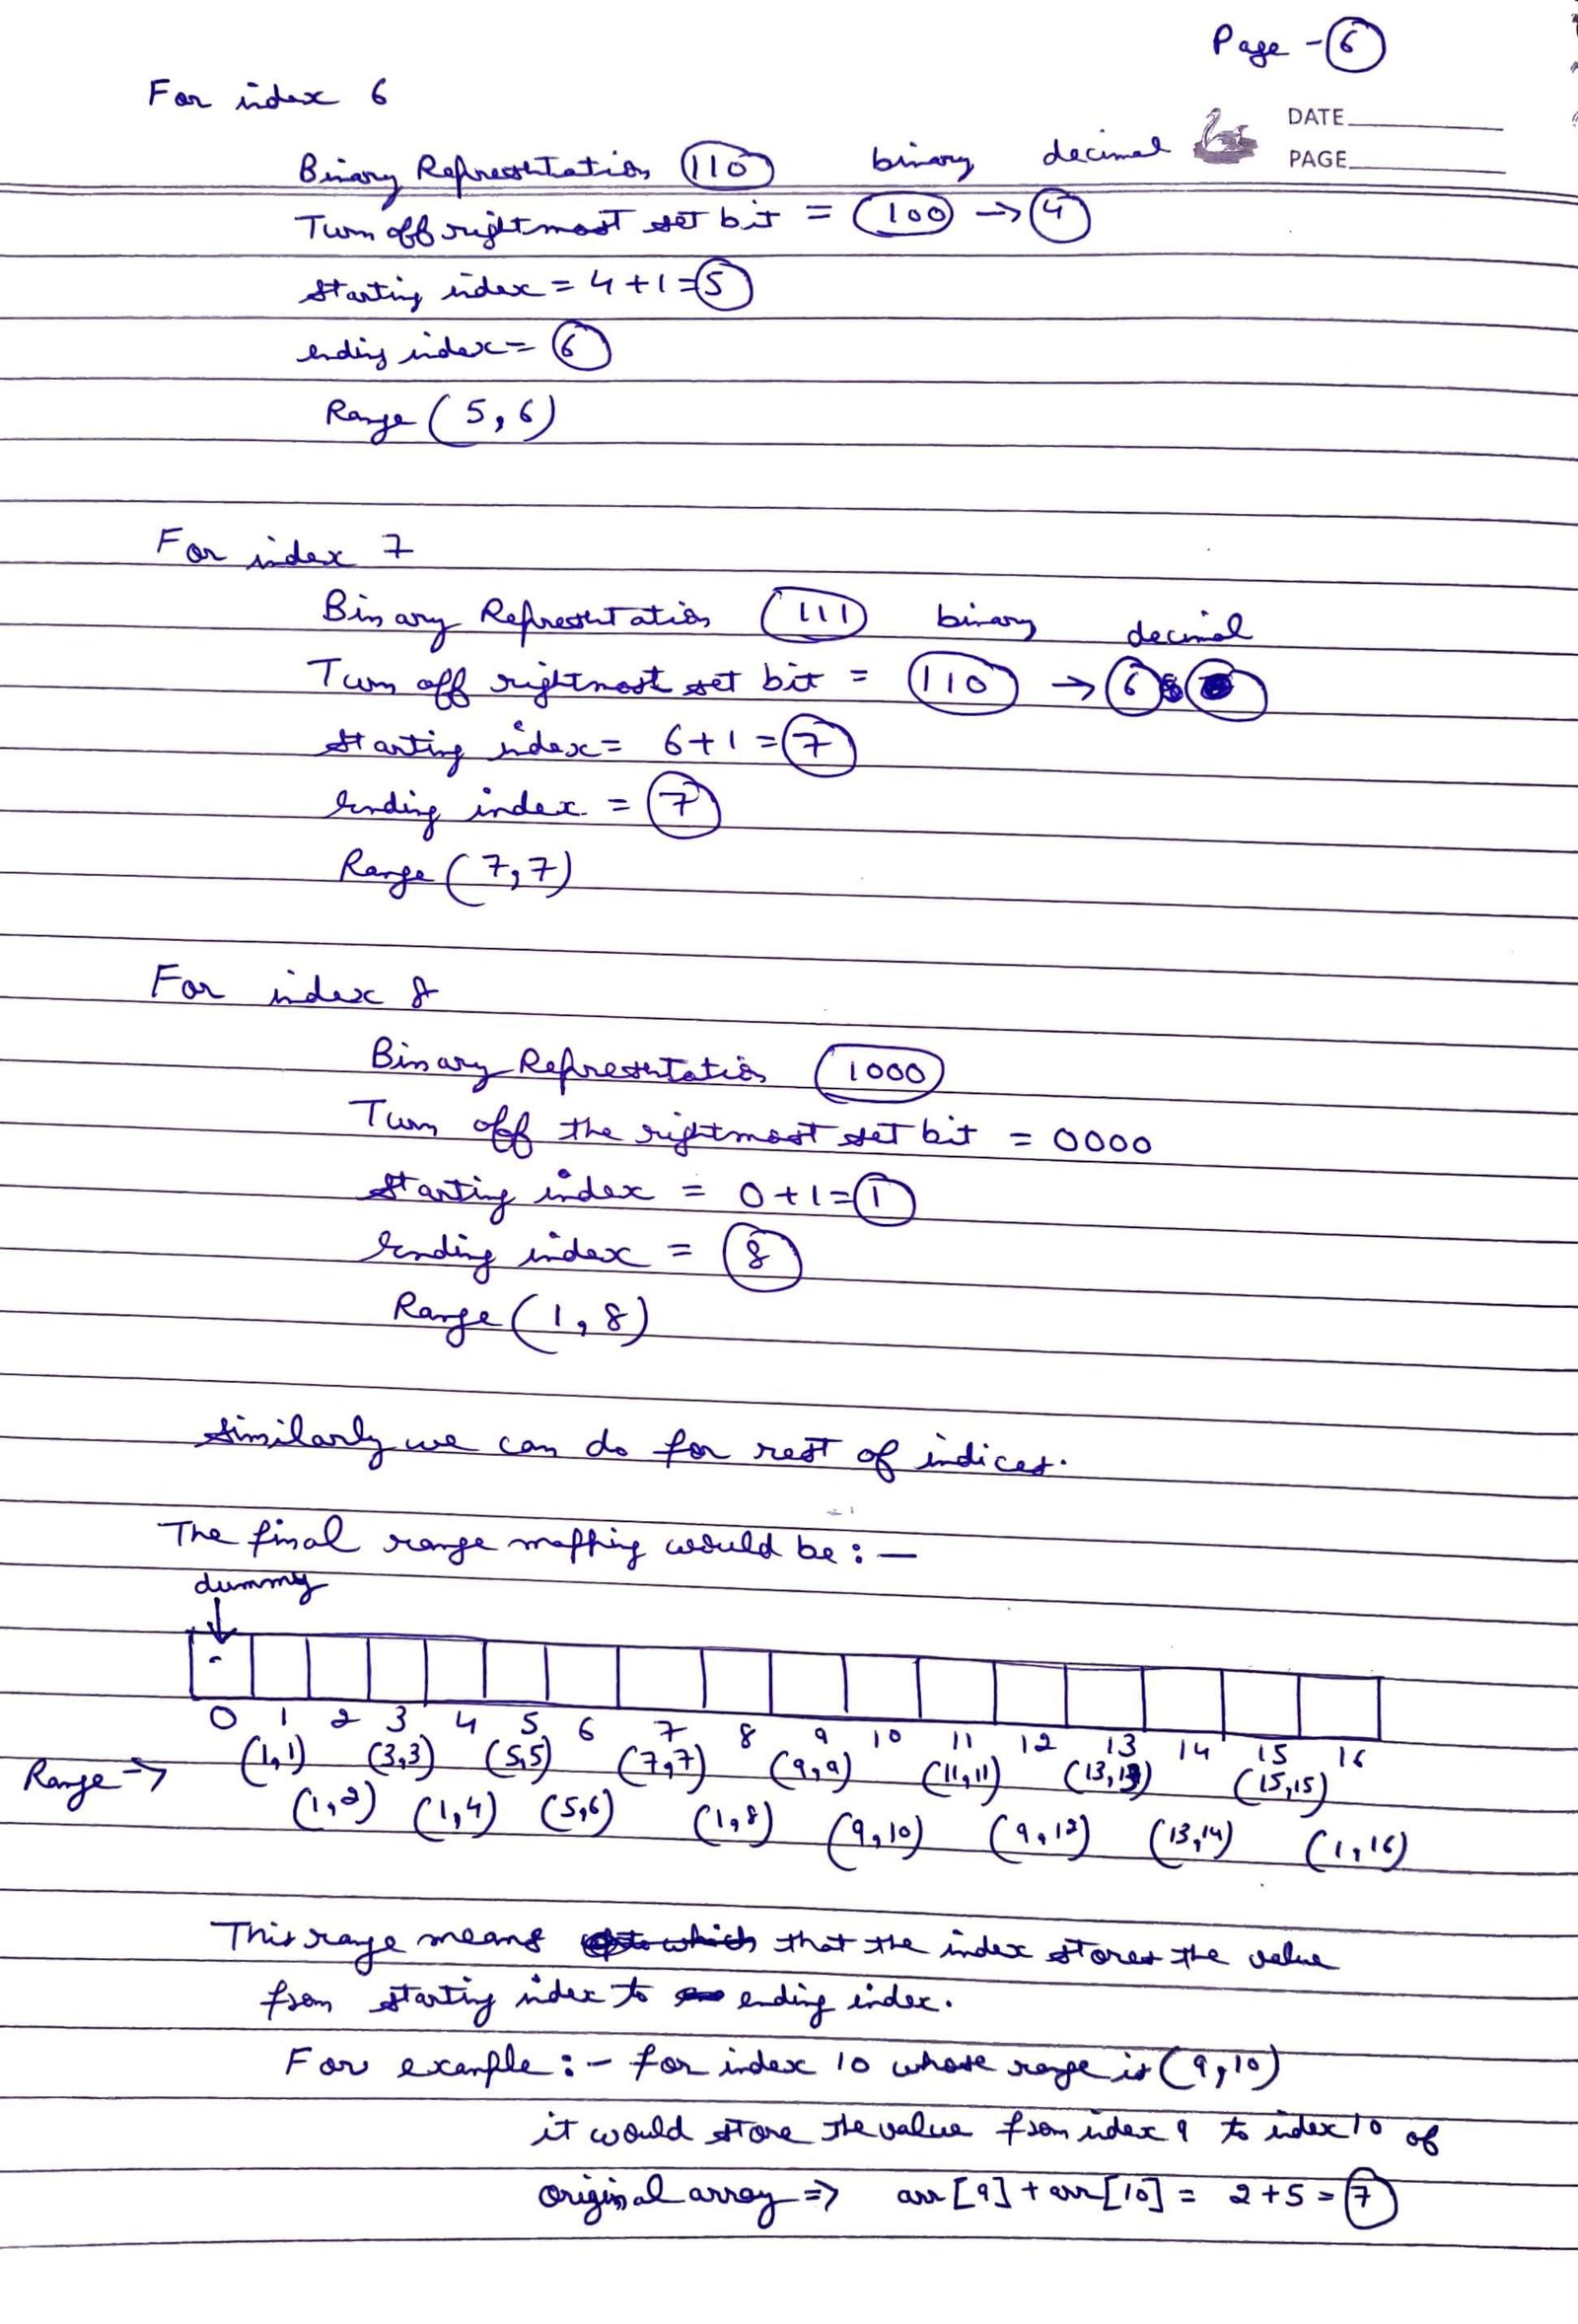 Page - 6
For index 6
DATE
PAGE
Binary Representation 110 binary decimal
Turn off rightmost set bit = 100 → 4
starting index = 4+1 = 5
ending index = 6
Range (5,6)
For index 7
Binary Representation 111 binary decimal
Turn off rightmost set bit = 110 → 6
starting index = 6+1 = 7
Ending index = 7
Range (7,7)
For index 8
Binary Representation 1000
Turn off the rightmost set bit = 0000
starting index = 0+1 = 1
Ending index = 8
Range (1,8)
Similarly we can do for rest of indices.
The final range mapping would be :-
dummy
-
0 1 2 3 4 5 6 7 8 9 10 11 12 13 14 15 16
Range → (1,1) (3,3) (5,5) (7,7) (9,9) (11,11) (13,13) (15,15)
(1,2) (1,4) (5,6) (1,8) (9,10) (9,12) (13,14) (1,16)
This range means which that the index stores the value
from starting index to ending index.
For example :- for index 10 whose range is (9,10)
it would store the value from index 9 to index 10 of
original array ⇒ arr[9] + arr[10] = 2+5 = 7